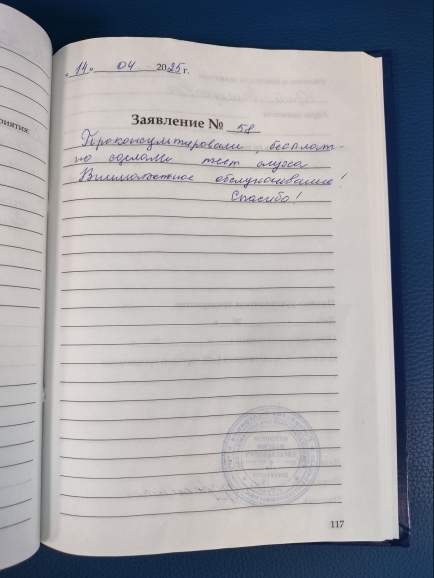 „11" 04 2025 г.
риятия:
Заявление № 58
Проконсультировали, бесплат-
но сделали тест слуха
Внимательное обслуживание!
Спасибо!
117